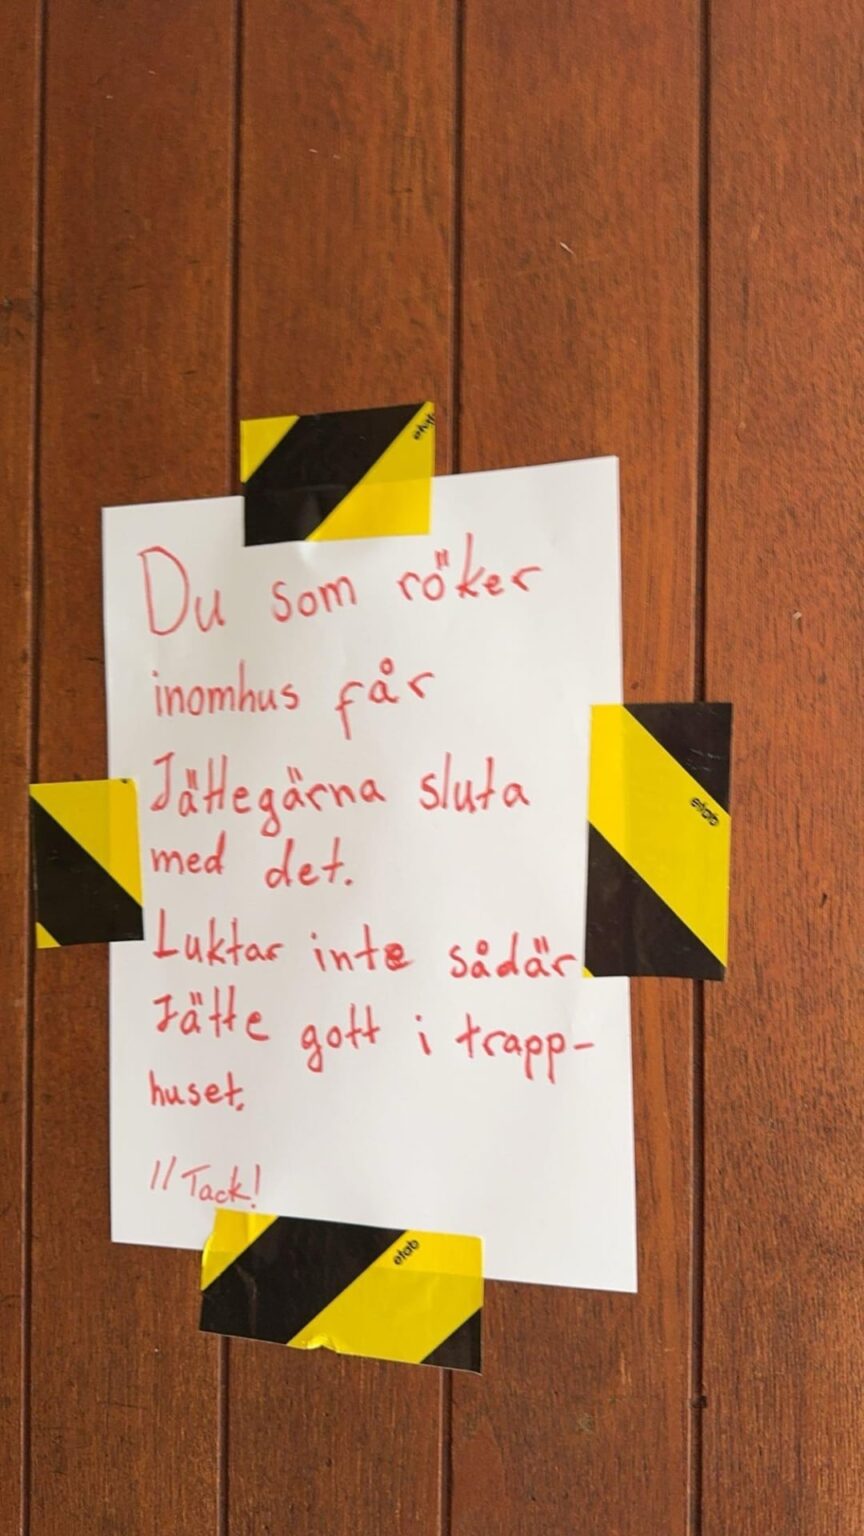 Du som röker
inomhus får
Jättegärna sluta
med det.
Luktar inte sådär
Jätte gott i trapp-
huset.
// Tack!
etab
etab